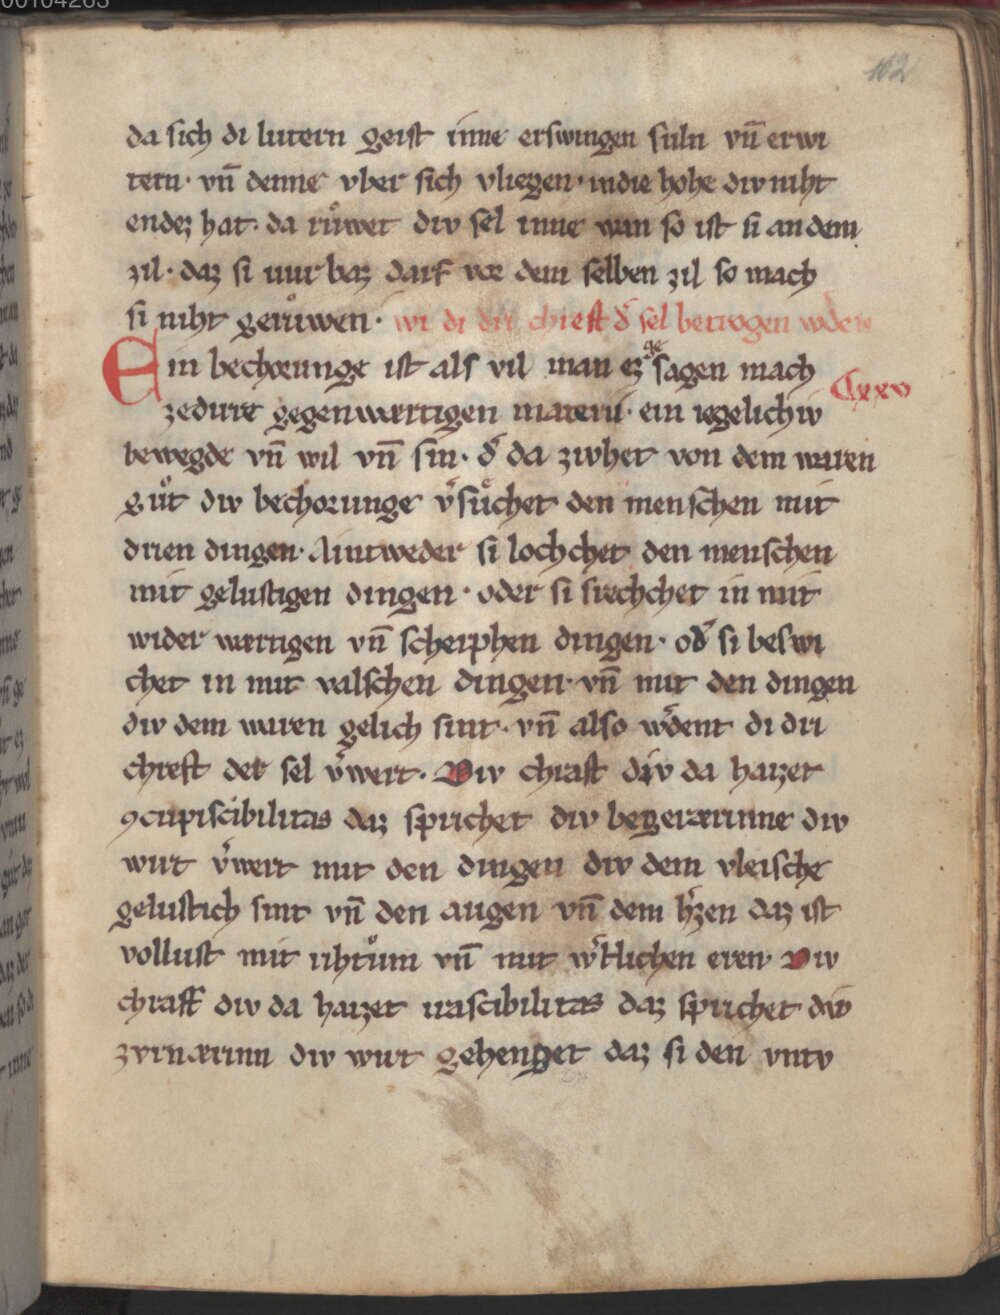 162
da sich di lutern geist inne erswingen suln vn̄ erwi
tern· vn̄ denne vber sich vliegen· indie hohe div niht
endez hat· da růwet div sel inne wan so ist si an dem
zil· daz si niur baz darf vor dem selben zil so mach
si niht gerůwen· wi di dri chreft d̾ sel betrogen w̾den
Ein bechorunge ist als vil man ez gesagen mach
Cxxv
zedirre gegenwærtigen materii· ein iegelichiv
bewegde vn̄ wil vn̄ sin· d̾ da zivhet von dem waren
gůt div bechorunge v̾sůchet den menschen mit
drien dingen· Aintweder si lochchet den menschen
mit gelustigen dingen· oder si srechchet in mit
wider wærtigen vn̄ scherphen dingen· od̾ si beswi
chet in mit valschen dingen· vn̄ mit den dingen
div dem waren gelich sint· vn̄ also w̾dent di dri
chreft der sel v̾wert· Div chraft div da haizet
ꝯcupiscibilitas daz sprichet div begerærinne div
wirt v̾wert mit den dingen div dem vleische
gelustich sint vn̄ den augen vn̄ dem h̾zen daz ist
vollust mit rihtům vn̄ mit w̾tlichen eren· Div
chraft div da haizet irascibilitas daz sprichet div
zvrnærinn div wirt gehenget daz si den vntv